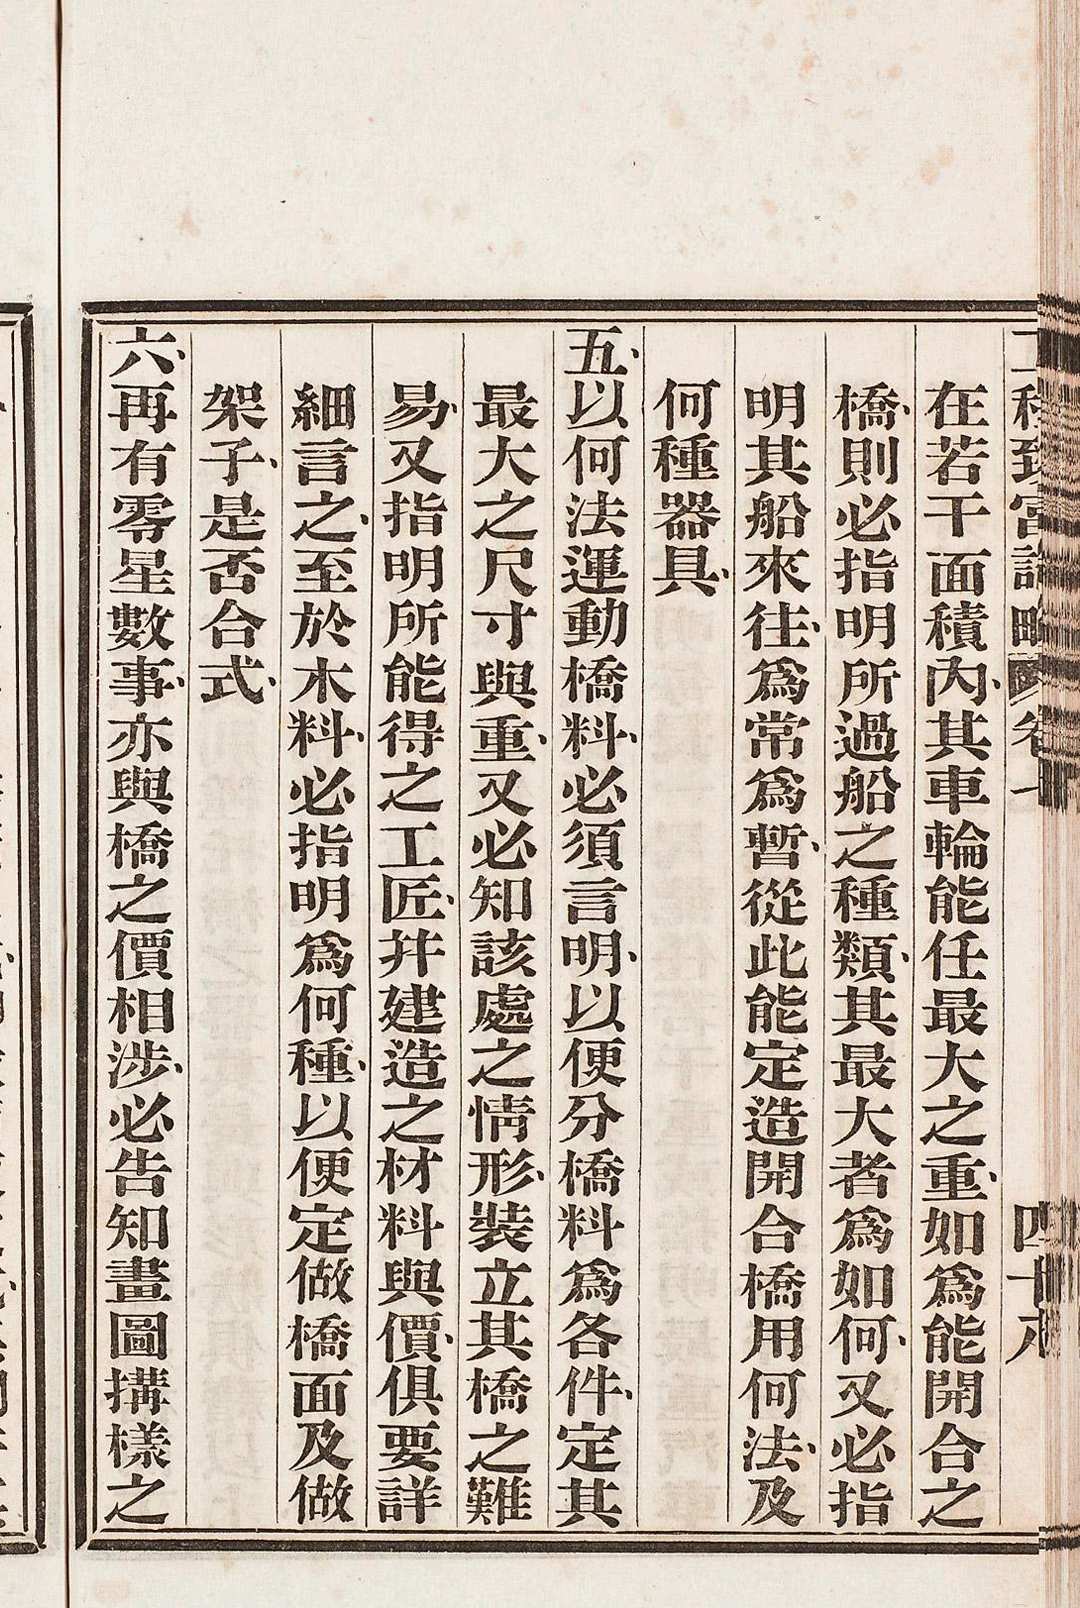 工程致富論略 卷七 四十八
在若干面積內、其車輪能任最大之重、如爲能開合之
橋、則必指明所過船之種類、其最大者爲如何、又必指
明其船來往、爲常爲暫、從此能定造開合橋用何法、及
何種器具、
五、以何法運動橋料、必須言明、以便分橋料爲各件、定其
最大之尺寸與重、又必知該處之情形、裝立其橋之難
易、又指明所能得之工匠、并建造之材料與價、俱要詳
細言之、至於木料、必指明爲何種、以便定做橋面及做
架子、是否合式、
六、再有零星數事、亦與橋之價相涉、必告知畫圖搆樣之